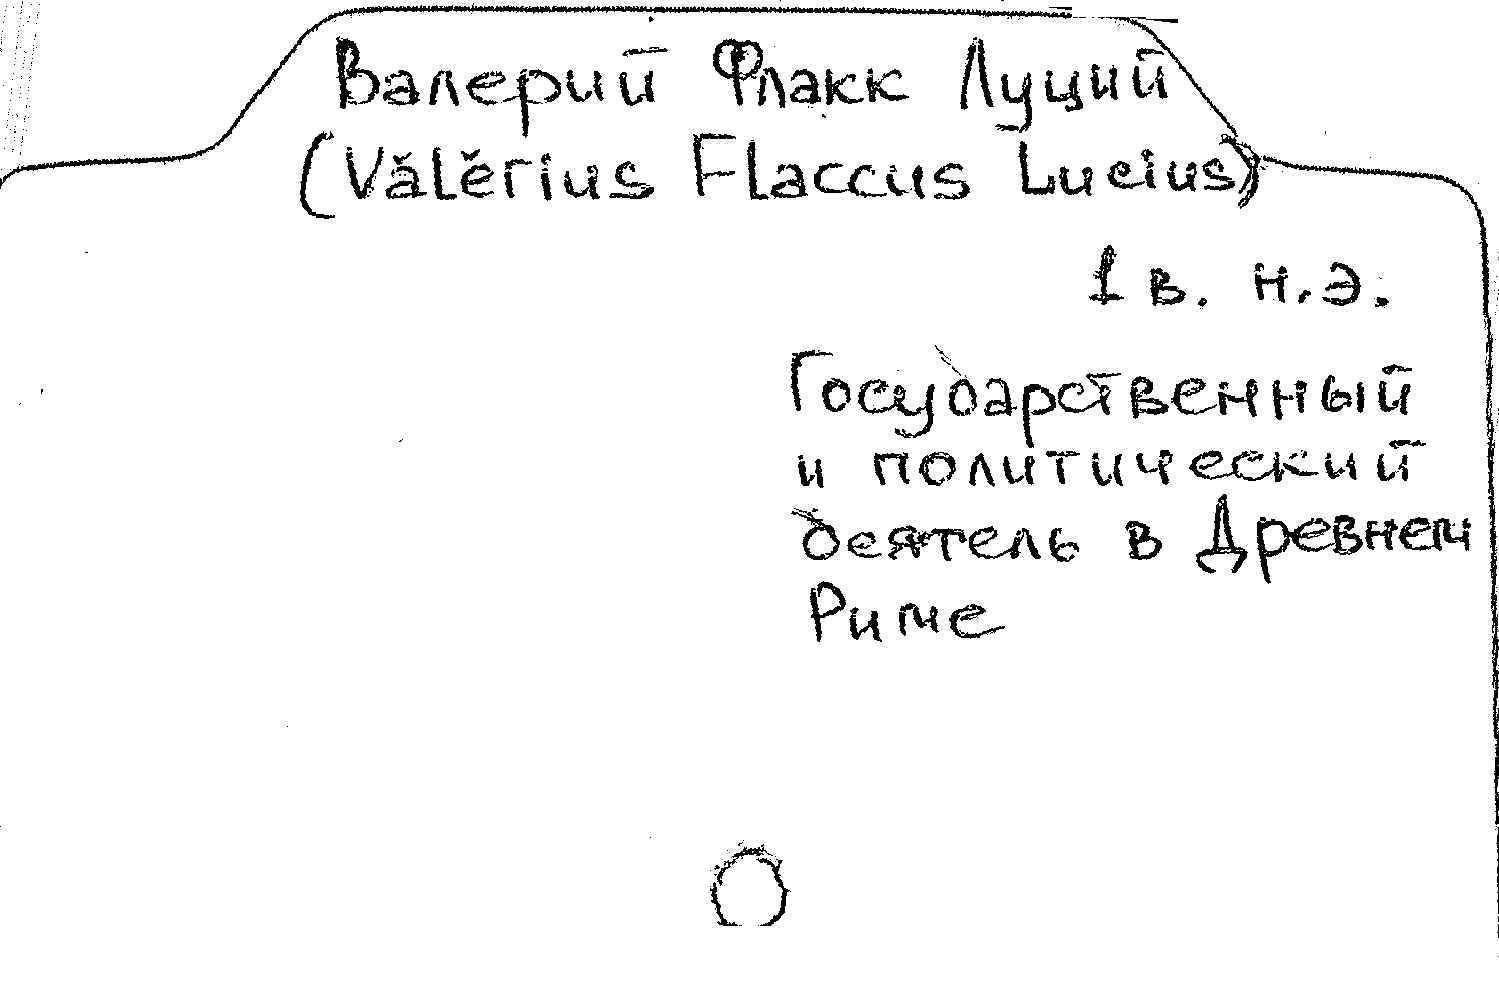 Валерий Флакк Луций
(Vălĕrius Flaccus Lucius)
1 в. н.э.
Государственный
и политический
деятель в Древнем
Риме